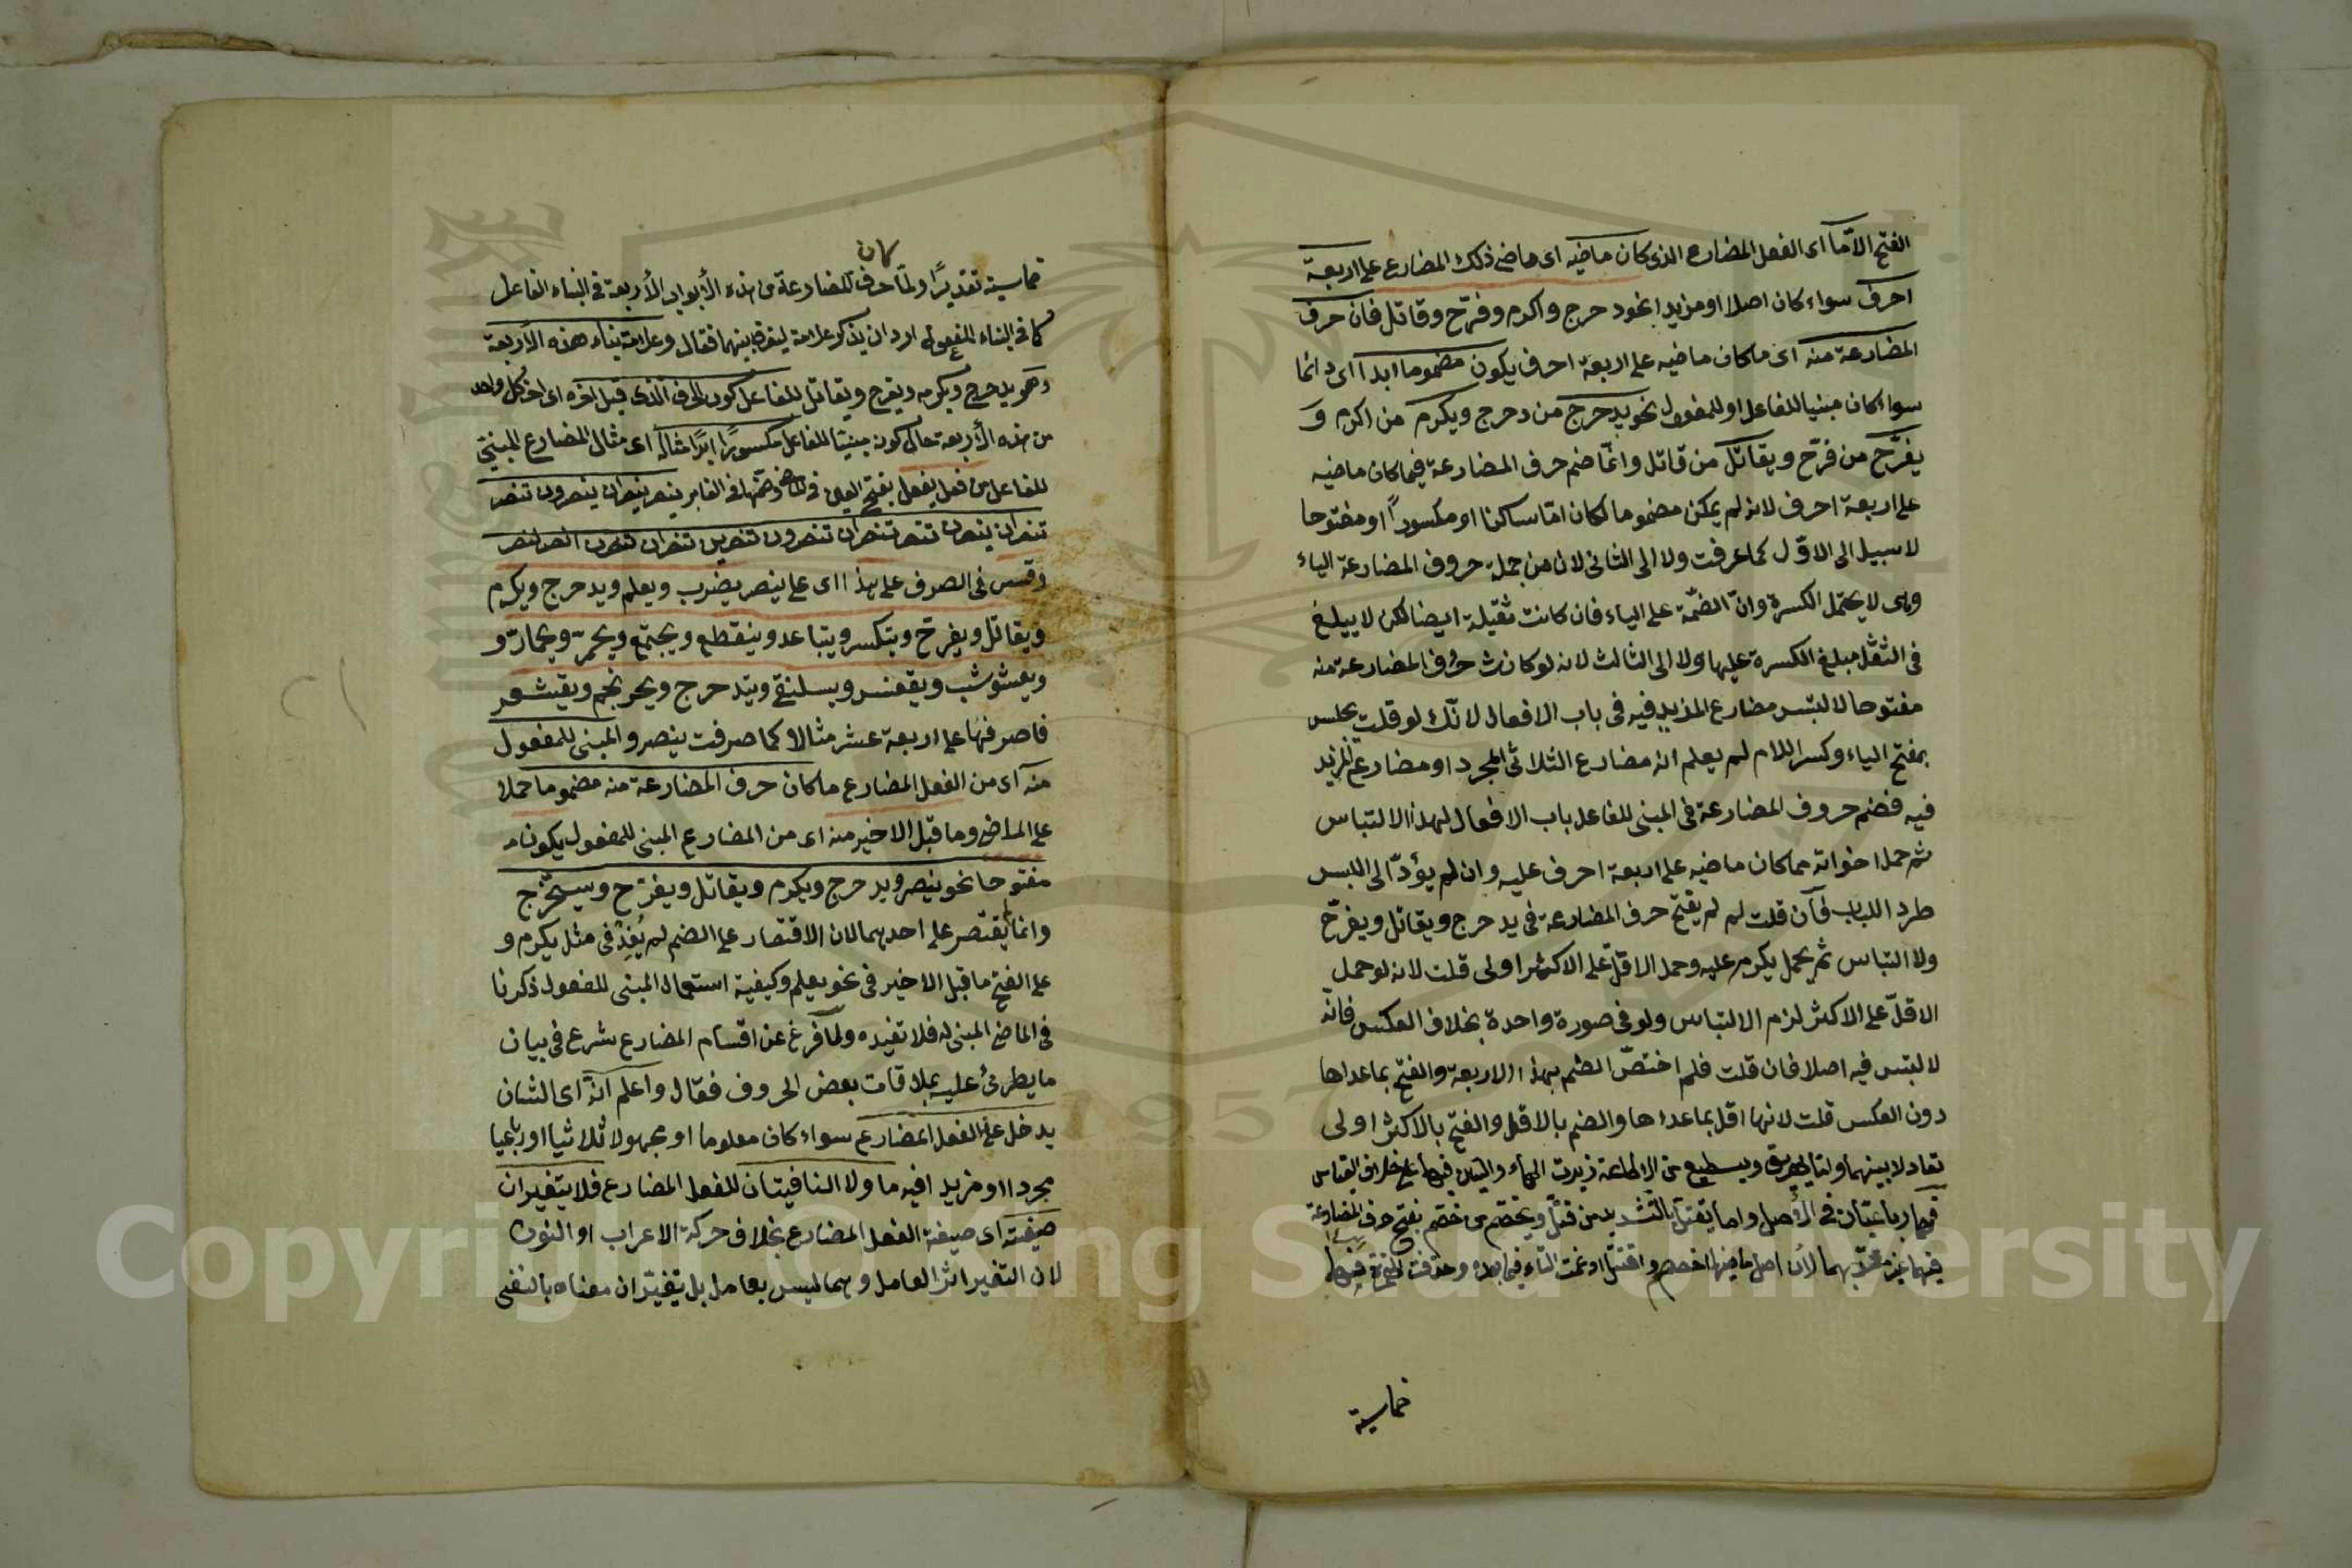 الفتح الا ما اى الفعل المضارع الذى كان ماضيه اى ماضى ذلك المضارع على اربعة
احرف سواء كان اصلا او مزيدا نحو دحرج واكرم وفرّح وقاتل فان حرف
المضارعة منه اى ما كان ماضيه على اربعة احرف يكون مضموما ابدا اى دائما
سواء كان مبنيا للفاعل او للمفعول نحو يدحرج من دحرج ويكرم من اكرم و
يفرّح من فرّح ويقاتل من قاتل وانّما ضم حرف المضارعة فيما كان ماضيه
على اربعة احرف لانه لم يمكن مضموما لكان امّا ساكنا او مكسورًا او مفتوحا
لا سبيل الى الاوّل كما عرفت ولا الى الثانى لان من جملة حروف المضارعة الياء
وهى لا يحتمل الكسرة وانّ الضمّة على الياء فان كانت ثقيلة ايضا لكن لا يبلغ
فى الثقل مبلغ الكسرة عليها ولا الى الثالث لانه لو كانت حروف المضارعة منه
مفتوحا لالتبس مضارع المزيد فيه فى باب الافعال لانّك لو قلت يجلس
بفتح الياء وكسر اللام لم يعلم انه مضارع الثلاثى المجرد او مضارع المزيد
فيه فضم حروف المضارعة فى المبنى للفاعل باب الافعال لهذا الالتباس
ثم حمل اخواته مما كان ماضيه على اربعة احرف عليه وان لم يؤدّ الى اللبس
طرد اللباب فان قلت لم لم يفتح حرف المضارعة فى يدحرج ويقاتل ويفرّح
ولا التباس ثم يحمل يكرم عليه وحمل الاقلّ على الاكثر اولى قلت لانه لو حمل
الاقلّ على الاكثر لزم الالتباس ولو فى صورة واحدة بخلاف العكس فانّه
لا لبس فيه اصلا فان قلت فلم اختصّ الضم بهذا الاربعة والفتح بما عداها
دون العكس قلت لانها اقل بما عداها والضم بالاقل والفتح بالاكثر اولى
تعادلا بينهما واما يهريق ويسطيع من الاطاعة زيدت الهاء والسين فيهما على خلاف القياس
فهما رباعيتان فى الأصل واما يقتل بالتشديد من قتل ويخصّم من خصّم بفتح حرف المضارعة
فيهما لان اصل ماضيهما اختصم واقتتل ادغمت التاء فيما بعده وحذفت الهمزة فيهما
خماسية
كان
خماسية تقديرًا ولمّا حرف المضارعة من هذه الأبواب الأربعة فى البناء الفاعل
كما فى البناء المفعول اراد ان يذكر علامة ليفرق بينهما فقال وعلامة بناء هذه الأربعة
وهو يدحرج ويكرم ويفرح ويقاتل للفاعل كون الحرف الذى قبل آخره اى اخر كل واحد
من هذه الأربعة حال كونه مبنيّا للفاعل مكسورًا ابدًا مثاله اى مثال المضارع المبنىّ
للفاعل من فعل يفعل بفتح العين فى الماضى وضمّها فى الغابر ينصر ينصران ينصرون تنصر
تنصران ينصرن تنصر تنصران تنصرون تنصرين تنصران تنصرن انصر ننصر
وقس فى الصرف على هذا اى على ينصر يضرب ويعلم ويدحرج ويكرم
ويقاتل ويفرح ويتكسر ويتباعد وينقطع ويجتمع ويحمرّ ويحمارّ و
ويعشوشب ويقعنسس ويسلنقى ويتدحرج ويحرنجم ويقشعر
فاصرفها على اربعة عشر مثالا كما صرفت ينصر والمبنى للمفعول
منه اى من الفعل المضارع ما كان حرف المضارعة منه مضموما حملا
على الماضى وما قبل الاخير منه اى من المضارع المبنى للمفعول يكون
مفتوحا نحو ينصر ويدحرج ويكرم ويقاتل ويفرّح ويستخرج
وانما يقتصر على احدهما لان الاقتصار على الضم لم يُفِدْ فى مثل يكرم و
على الفتح ما قبل الاخير فى نحو يعلم وكيفية استعمال المبنى للمفعول ذكرنا
فى الماضى المبنى له فلا تفيده ولمّا فرغ عن اقسام المضارع شرع فى بيان
ما يطرئ عليه بملاقات بعض الحروف فقال واعلم انّه اى الشان
يدخل على الفعل المضارع سواء كان معلوما او مجهولا ثلاثيا او رباعيا
مجردا او مزيدا فيه ما ولا النافيتان للفعل المضارع فلا يتغيران
صيغته اى صيغة الفعل المضارع بخلاف حركة الاعراب او النون
لان التغير اثر العامل وهما ليس بعامل بل يتغيّران معناه بالنفى
Copyright © King Saud University
1957